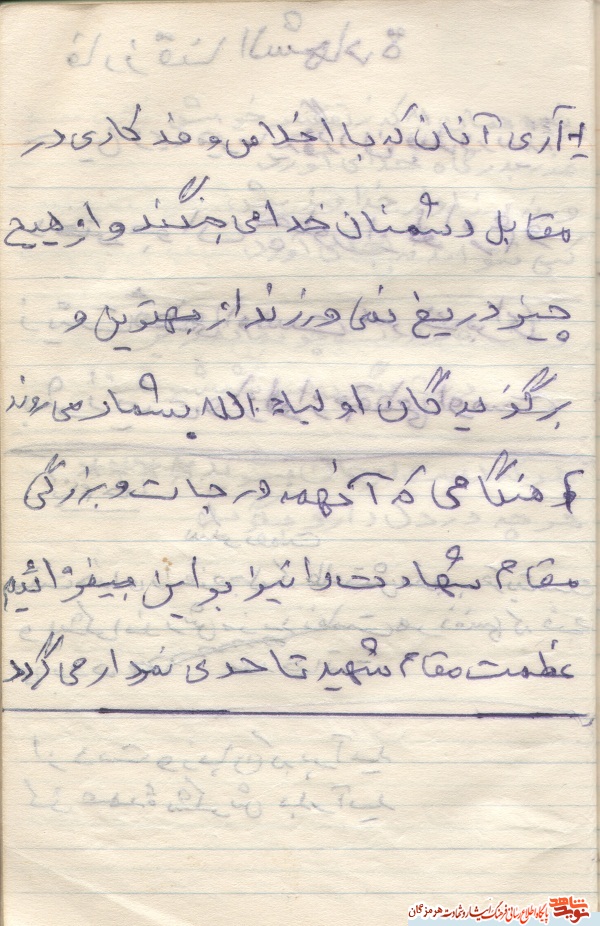 آری آنان که با اخلاص و فدکاری در
مقابل دشمنان خدا می جنگند و از هیچ
چیز دریغ نمی ورزند از بهترین و
برگزیدگان اولیاء الله بشمار می روند
و هنگامی که آنهمه درجات و بزرگی
مقام شهادت را نیز بر این بیفزائیم
عظمت مقام شهید تا حدی نمودار می گردد
نوید شاهد
پایگاه اطلاع رسانی فرهنگ ایثار و شهادت هرمزگان